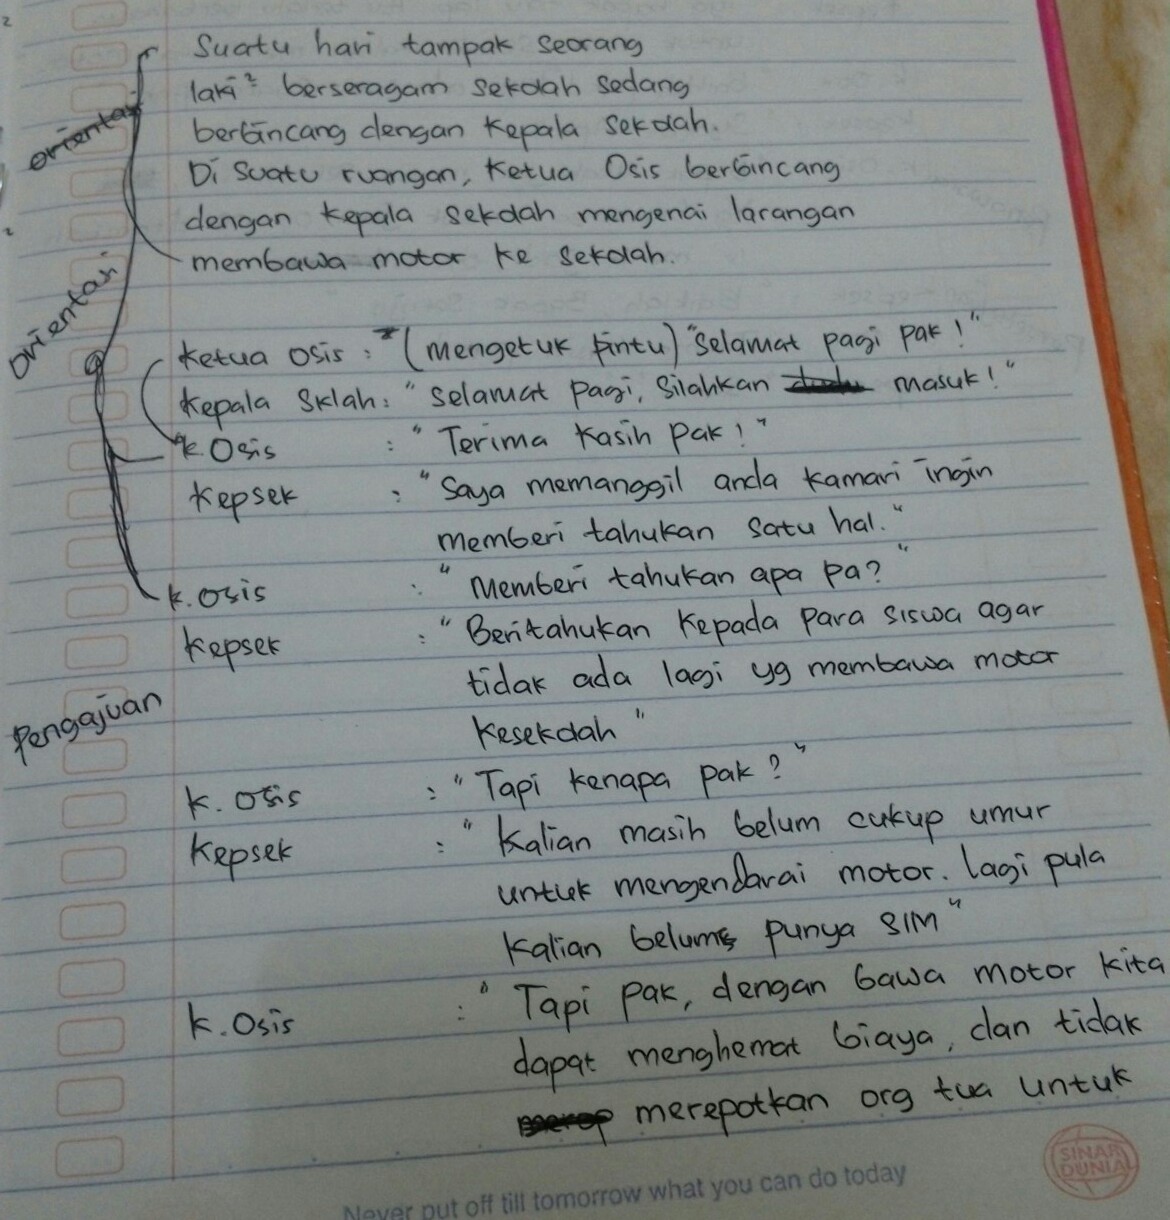 Suatu hari tampak seorang
laki² berseragam sekolah sedang
berbincang dengan Kepala sekolah.
Di suatu ruangan, Ketua Osis berbincang
dengan Kepala sekolah mengenai larangan
membawa motor ke sekolah.
orientasi
orientasi
Ketua Osis : (mengetuk pintu) "Selamat pagi pak!"
Kepala Sklah : "Selamat pagi, Silahkan masuk!"
K. Osis : "Terima kasih pak!"
Kepsek : "Saya memanggil anda kamari ingin
memberi tahukan satu hal."
K. Osis : "Memberi tahukan apa pa?"
Kepsek : "Beritahukan kepada para siswa agar
tidak ada lagi yg membawa motor
Kesekolah"
Pengajuan
K. Osis : "Tapi kenapa pak?"
Kepsek : "Kalian masih belum cukup umur
untuk mengendarai motor. lagi pula
Kalian belum punya SIM"
K. Osis : "Tapi pak, dengan bawa motor kita
dapat menghemat biaya, dan tidak
merepotkan org tua untuk
SINAR
DUNIA
Never put off till tomorrow what you can do today